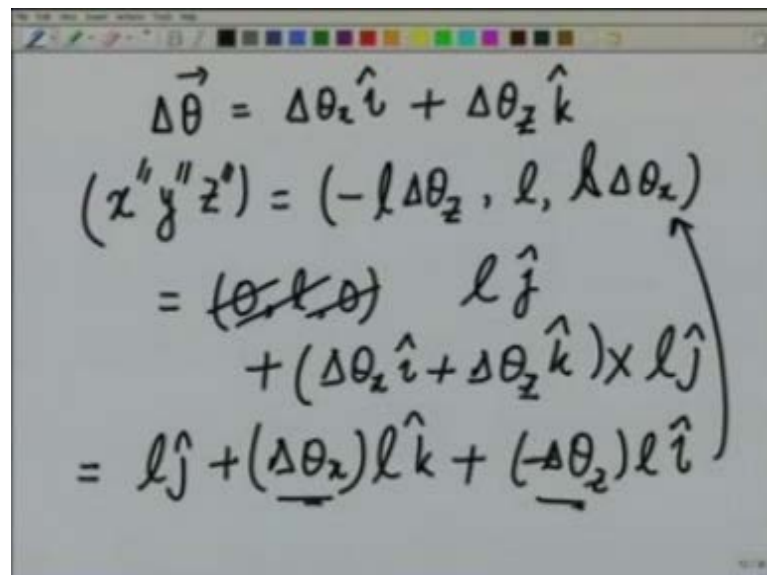 Δθ⃗ = Δθₓ î + Δθ_z k̂
(x″ y″ z″) = (-lΔθ_z, l, lΔθₓ)
= (0, l, 0) l ĵ
+ (Δθₓ î + Δθ_z k̂) × l ĵ
= l ĵ + (Δθₓ) l k̂ + (-Δθ_z) l î